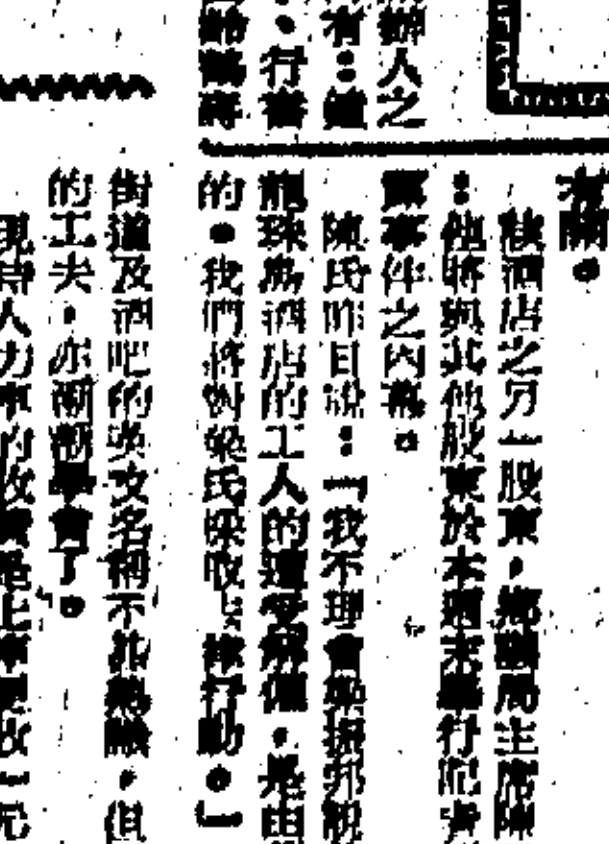 辦人之
有：
・行
有關。
該酒店之另一股東，鄉議局主席陳
：他將與其他股東於本週末舉行記者
事件之內幕。
陳氏昨日說：「我不理會梁振邦說
龍珠島酒店的工人的遭受解僱，是由
的。我們將對梁氏採取法律行動。」
街道及酒吧的英文名稱不甚熟識，但
的工夫，亦漸漸學會了。
現時人力車的收費是上車便收一元